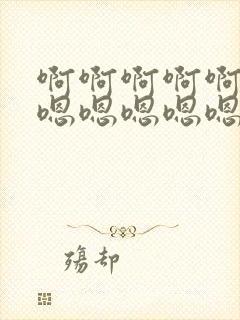 啊啊啊啊啊
嗯嗯嗯嗯嗯
殇却